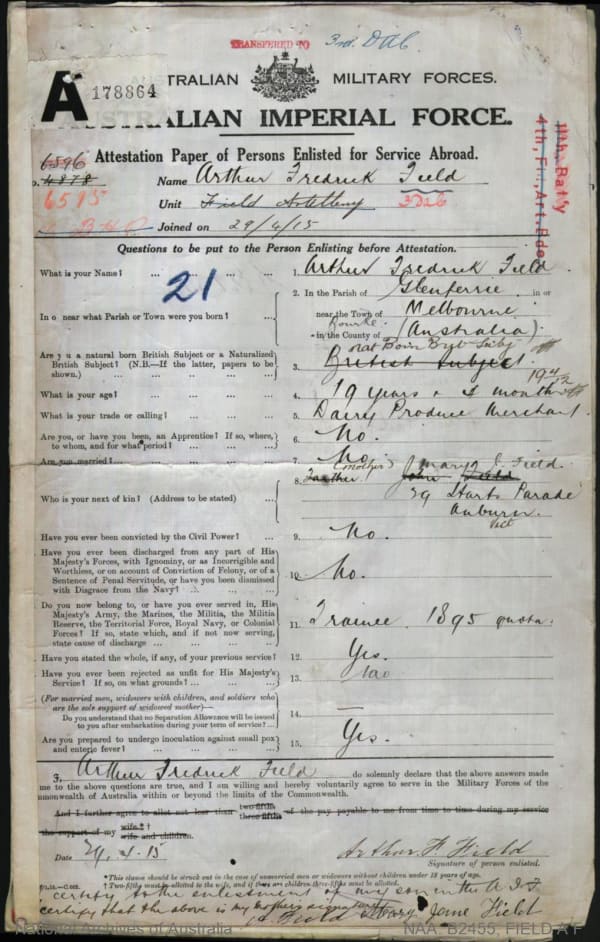 TRANSFERED TO 3rd. DAC
A 178864
AUSTRALIAN MILITARY FORCES.
AUSTRALIAN IMPERIAL FORCE.
Attestation Paper of Persons Enlisted for Service Abroad.
11th. Baty
4th. F. Art. Bde
6596
4878
6515
Name Arthur Fredrick Field
Unit Field Artillery 3 Dac
Joined on 29/4/15
Questions to be put to the Person Enlisting before Attestation.
What is your Name? ... 1. Arthur Fredrick Field
21
In or near what Parish or Town were you born? ... 2. In the Parish of Glenferrie in or
near the Town of Melbourne
in the County of Bourke (Australia).
Are you a natural born British Subject or a Naturalized British Subject? (N.B.—If the latter, papers to be shown.) ... 3. Nat Born British Subject
What is your age? ... 4. 19 years + 4 months 19 4/12
What is your trade or calling? ... 5. Dairy Produce Merchant.
Are you, or have you been, an Apprentice? If so, where, to whom, and for what period? ... 6. No.
Are you married? ... 7. No.
Who is your next of kin? (Address to be stated) ... 8. Father (mother) John Field Mary J. Field.
29 Harts Parade
Auburn.
Vict
Have you ever been convicted by the Civil Power? ... 9. No.
Have you ever been discharged from any part of His Majesty's Forces, with Ignominy, or as Incorrigible and Worthless, or on account of Conviction of Felony, or of a Sentence of Penal Servitude, or have you been dismissed with Disgrace from the Navy? ... 10. No.
Do you now belong to, or have you ever served in, His Majesty's Army, the Marines, the Militia, the Militia Reserve, the Territorial Force, Royal Navy, or Colonial Forces? If so, state which, and if not now serving, state cause of discharge ... 11. Trainee. 1895 quota.
Have you stated the whole, if any, of your previous service? 12. Yes.
Have you ever been rejected as unfit for His Majesty's Service? If so, on what grounds? ... 13. No
(For married men, widowers with children, and soldiers who are the sole support of widowed mother)—
Do you understand that no Separation Allowance will be issued to you after embarkation during your term of service? ... 14. —
Are you prepared to undergo inoculation against small pox and enteric fever? ... 15. Yes.
I, Arthur Fredrick Field do solemnly declare that the above answers made
me to the above questions are true, and I am willing and hereby voluntarily agree to serve in the Military Forces of the
Commonwealth of Australia within or beyond the limits of the Commonwealth.
And I further agree to allot not less than two-fifths three-fifths of the pay payable to me from time to time during my service
the support of my wife* † wife and children.
Date 29.4.15 Arthur F. Field
Signature of person enlisted.
*This clause should be struck out in the case of unmarried men or widowers without children under 18 years of age.
† Two-fifths must be allotted to the wife, and if there are children three-fifths must be allotted.
certify to the enlistment of my son in the A.I.F
certify that the above is my mothers signature
A. Field Mary Jane Field
National Archives of Australia NAA: B2455, FIELD A F